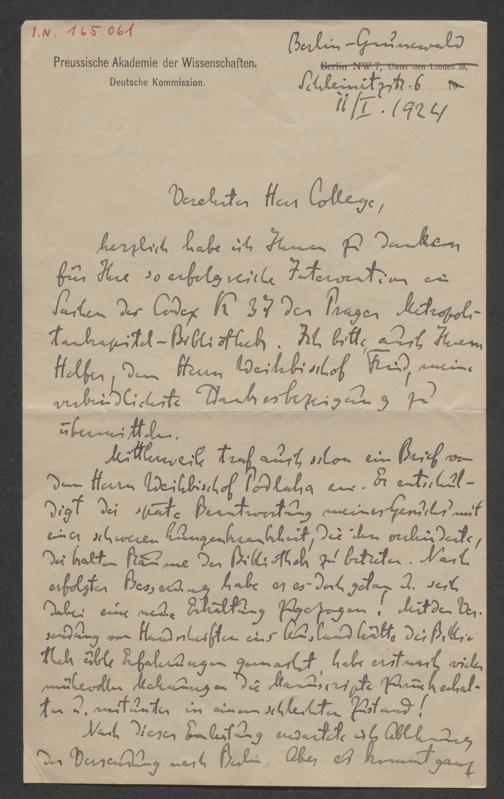 I.N. 165.061
Preussische Akademie der Wissenschaften.
Deutsche Kommission.
Berlin-Grunewald
Berlin NW 7, Unter den Linden 38,
Schleinitzstr. 6 19
11/I. 1924
Verehrter Herr College,
herzlich habe ich Ihnen zu danken
für Ihre so erfolgreiche Intervention in
Sachen des Codex K 37 der Prager Metropoli-
tankapitel-Bibliothek. Ich bitte, auch Ihrem
Helfer, dem Herrn Weihbischof Frind, meine
verbindlichste Dankesbezeigung zu
übermitteln.
Mittlerweile traf auch schon ein Brief von
dem Herrn Weihbischof Podlaha ein. Er entschul-
digt die späte Beantwortung meines Gesuchs mit
einer schweren Lungenkrankheit, die ihn verhinderte,
die kalten Räume der Bibliothek zu betreten. Nach
erfolgter Besserung habe er es doch getan u. sich
dabei eine neue Erkältung zugezogen! Mit der Ver-
sendung von Handschriften ins Ausland hätte die Biblio-
thek üble Erfahrungen gemacht, habe erst nach vielen
mühevollen Mahnungen die Manuscripte zurückerhal-
ten u. mitunter in einem schlechten Zustand!
Nach dieser Einleitung erwartete ich Ablehnung
der Versendung nach Berlin. Aber es kommt ganz